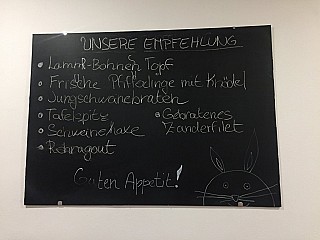 UNSERE EMPFEHLUNG
Lamm-Bohnen Topf
Frische Pfifferlinge mit Knödel
Jungschweinebraten
Tafelspitz
Gebratenes
Schweinshaxe
Zanderfilet
Rehragout
Guten Appetit!